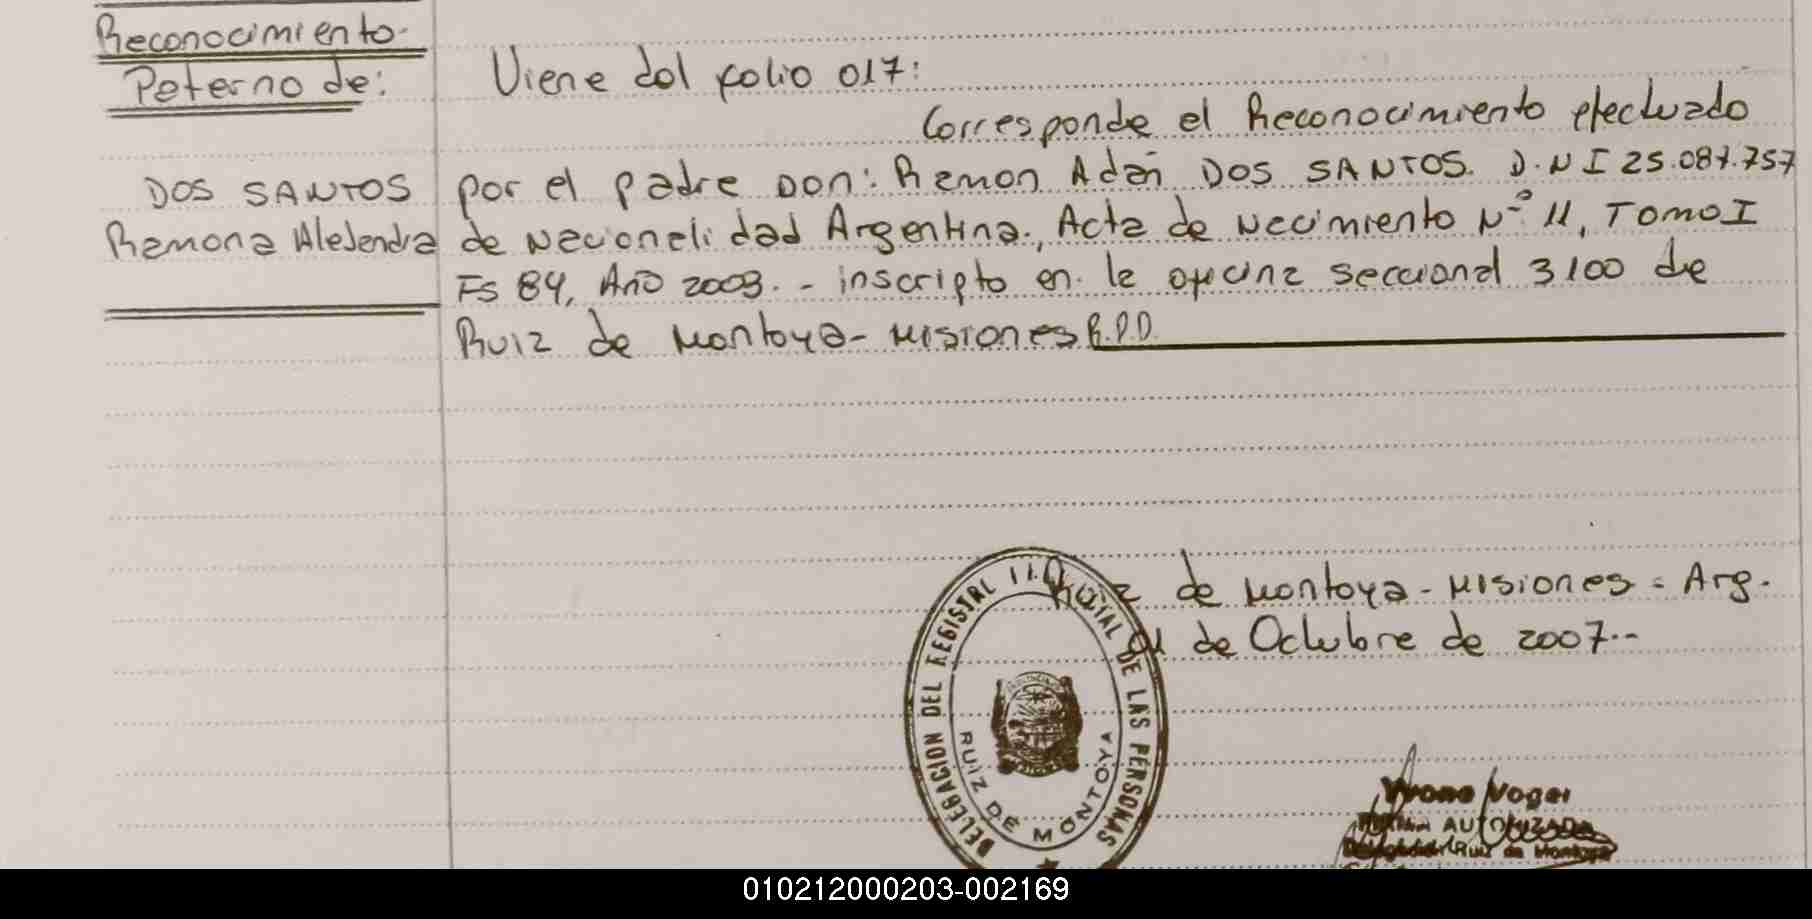 Reconocimiento
Paterno de:
DOS SANTOS
Ramona Alejandra
Viene del folio 017:
Corresponde el Reconocimiento efectuado
por el padre Don: Ramon Adan DOS SANTOS. D.N I 25.087.757
de Nacionalidad Argentina., Acta de Nacimiento Nº 11, TOMO I
Fs 84, Año 2003. - inscripto en la oficina seccional 3100 de
Ruiz de Montoya - Misiones R.P.D.
Ruiz de Montoya - Misiones = Arg.
01 de Octubre de 2007.--
DELEGACION DEL REGISTRO DE LAS PERSONAS
RUIZ DE MONTOYA
Yvone Vogel
AUTORIZADA
Delegación Ruiz de Montoya
010212000203-002169